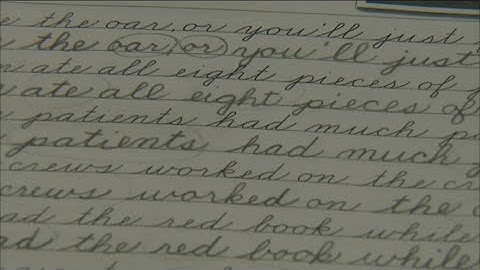 the oar, or you'll just
the oar, or you'll just
ate all eight pieces of
ate all eight pieces of
patients had much
patients had much
crews worked on the
crews worked on the
the red book while
the red book while